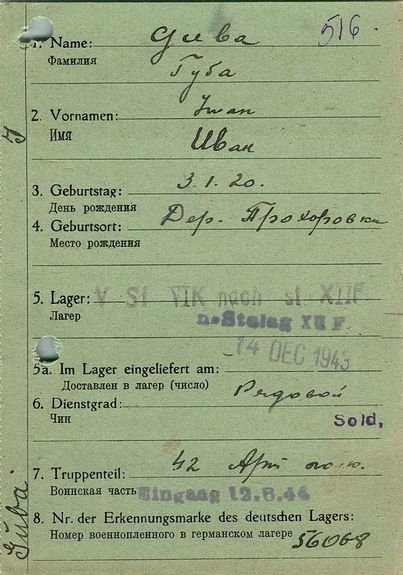 516.
1. Name: Guba
Фамилия Губа
2. Vornamen: Iwan
Имя Иван
3. Geburtstag: 3.1.20.
День рождения
4. Geburtsort: Дер. Прохоровка
Место рождения
5. Lager: V St VIK nach st XIIF
Лагер n. Stalag XII F.
14 DEC 1943
5a. Im Lager eingeliefert am:
Доставлен в лагер (число) Рядовой
6. Dienstgrad:
Чин Sold.
7. Truppenteil: 42 Арт полк.
Воинская часть Eingang 12.6.44
8. Nr. der Erkennungsmarke des deutschen Lagers:
Номер военнопленного в германском лагере 56068
Guba